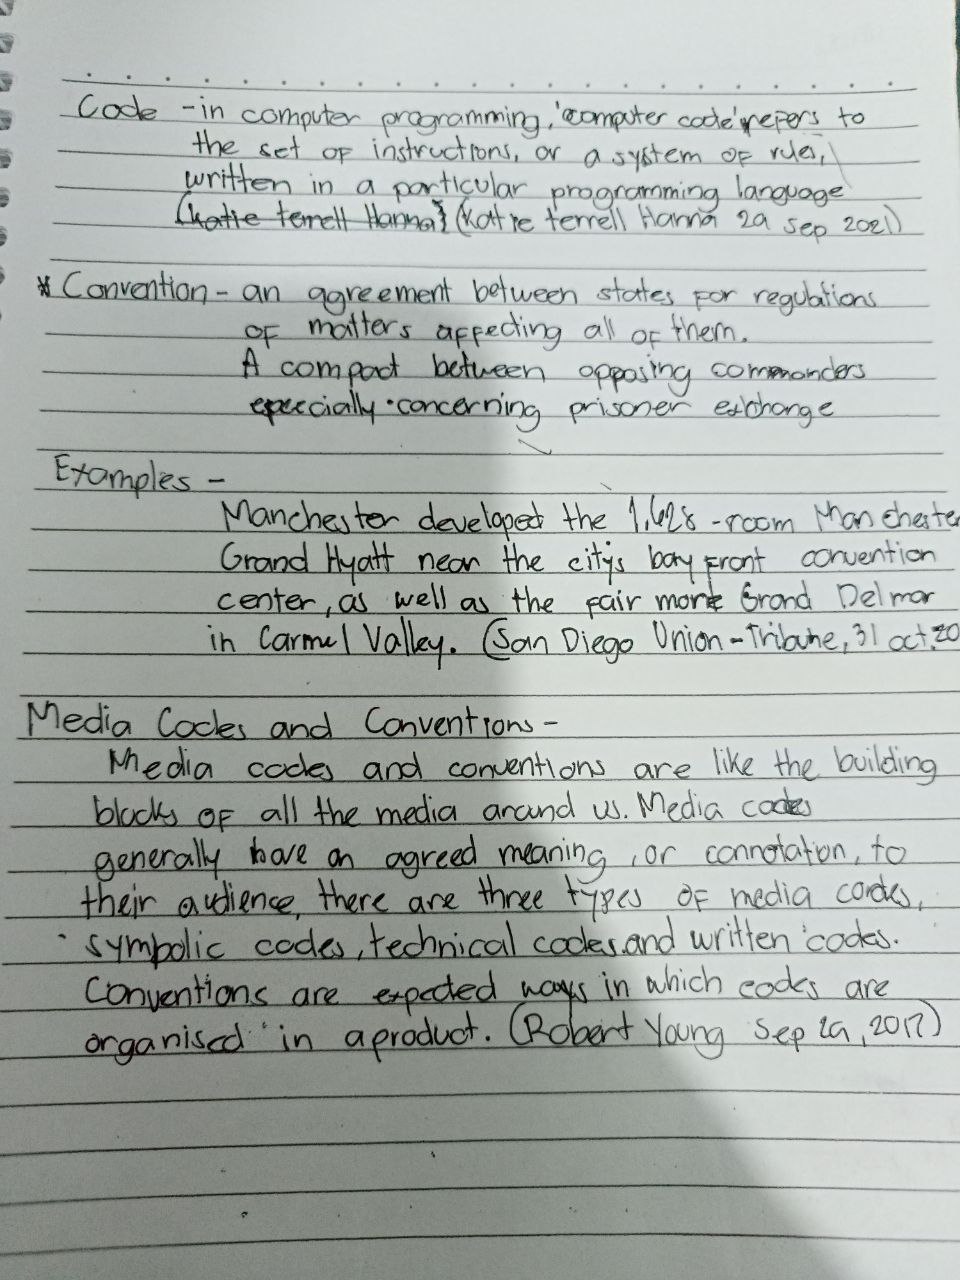 Code - in computer programming, 'computer code' refers to
the set of instructions, or a system of rules,
written in a particular programming language
(Katie terrell Hanna) (Katie terrell Hanna 2a sep 2021)
* Convention - an agreement between states for regulations
of matters affecting all of them.
A compact between opposing commanders
epecially concerning prisoner exchange
Examples -
Manchester developed the 1,628-room Manchester
Grand Hyatt near the citys bay front convention
center, as well as the fair mont Grand Delmar
in Carmel Valley. (San Diego Union-Tribune, 31 oct, 20
Media Codes and Conventions -
Media codes and conventions are like the building
blocks of all the media around us. Media codes
generally have an agreed meaning, or connotation, to
their audience, there are three types of media cordes,
symbolic codes, technical codes and written codes.
Conventions are expected ways in which codes are
organised in a product. (Robert Young Sep 2a, 2017)